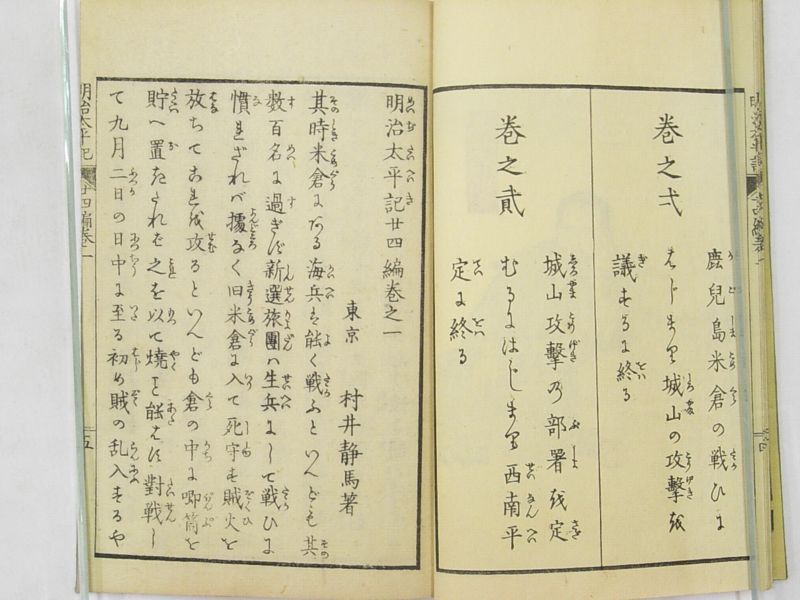 巻之弌
鹿兒島米倉の戦ひに
はじまり城山の攻撃を
議するに終る
巻之貳
城山攻撃の部署を定
むるにはじまり西南平
定に終る
明治太平記廿四編巻之一
東京 村井静馬著
其時米倉にある海兵も能く戦ふといへども其
数百名に過ぎず新選旅團ハ生兵にして戦ひに
慣れざれバ據なく旧米倉に入て死守す賊火を
放ちてこれを攻るといへども倉の中に喞筒を
貯へ置たれば之を以て焼を能はず對戦し
て九月二日の日中に至る初め賊の乱入するや
明治太平記 廿四編巻一
五